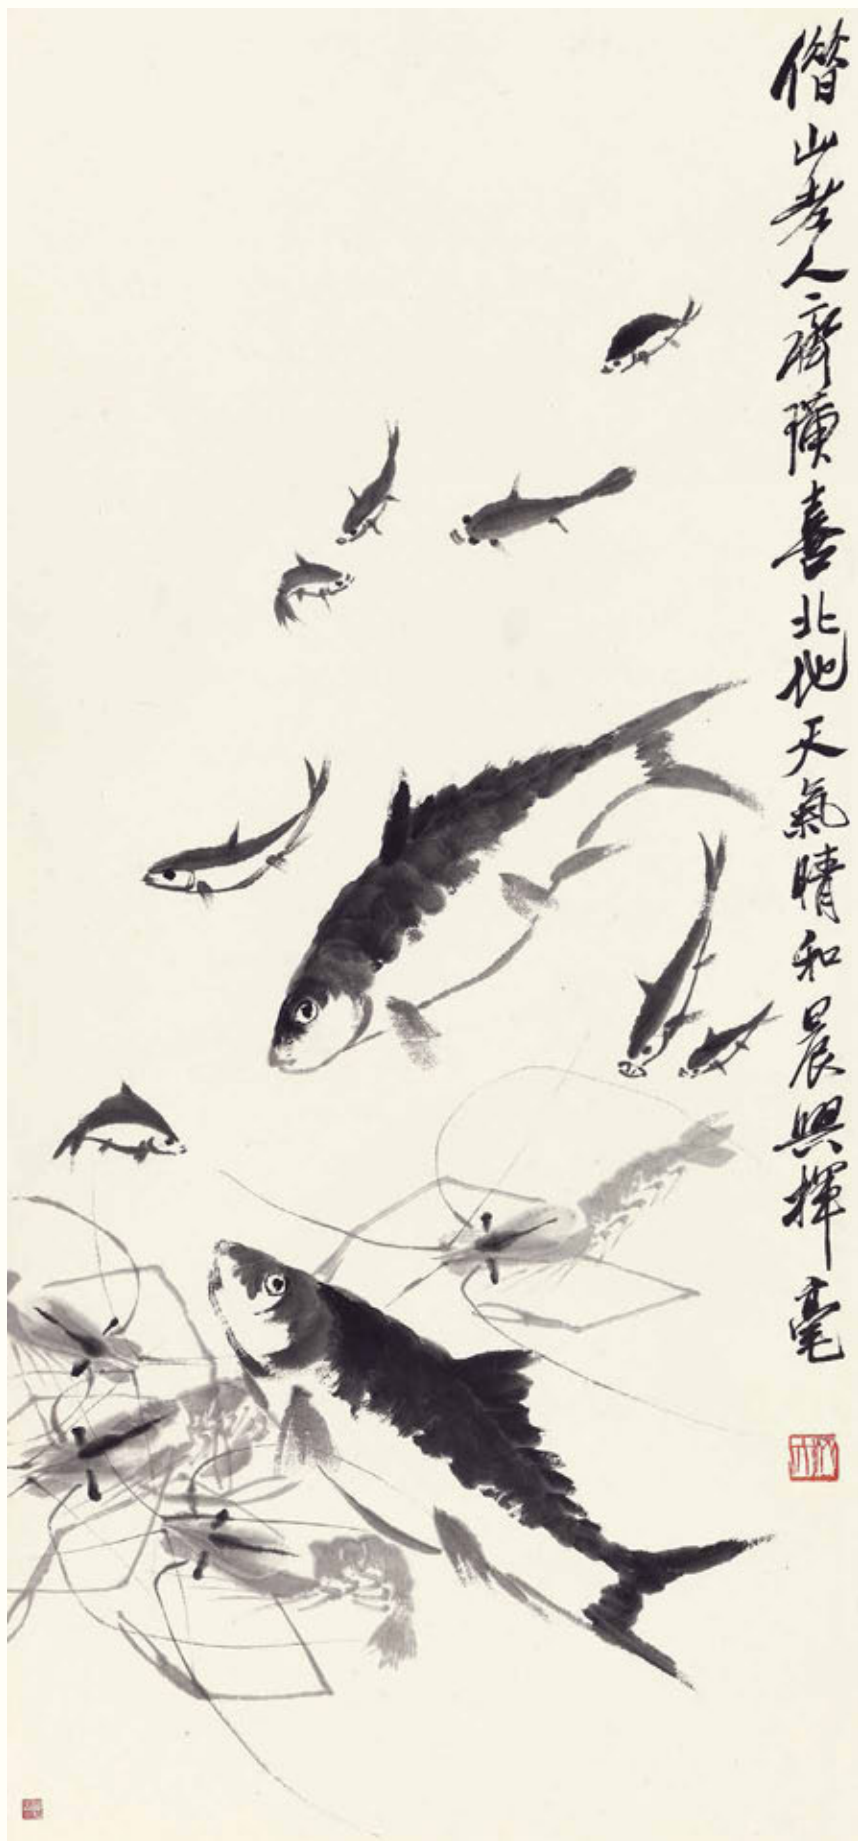 借山老人齊璜喜北地天氣晴和晨興揮毫